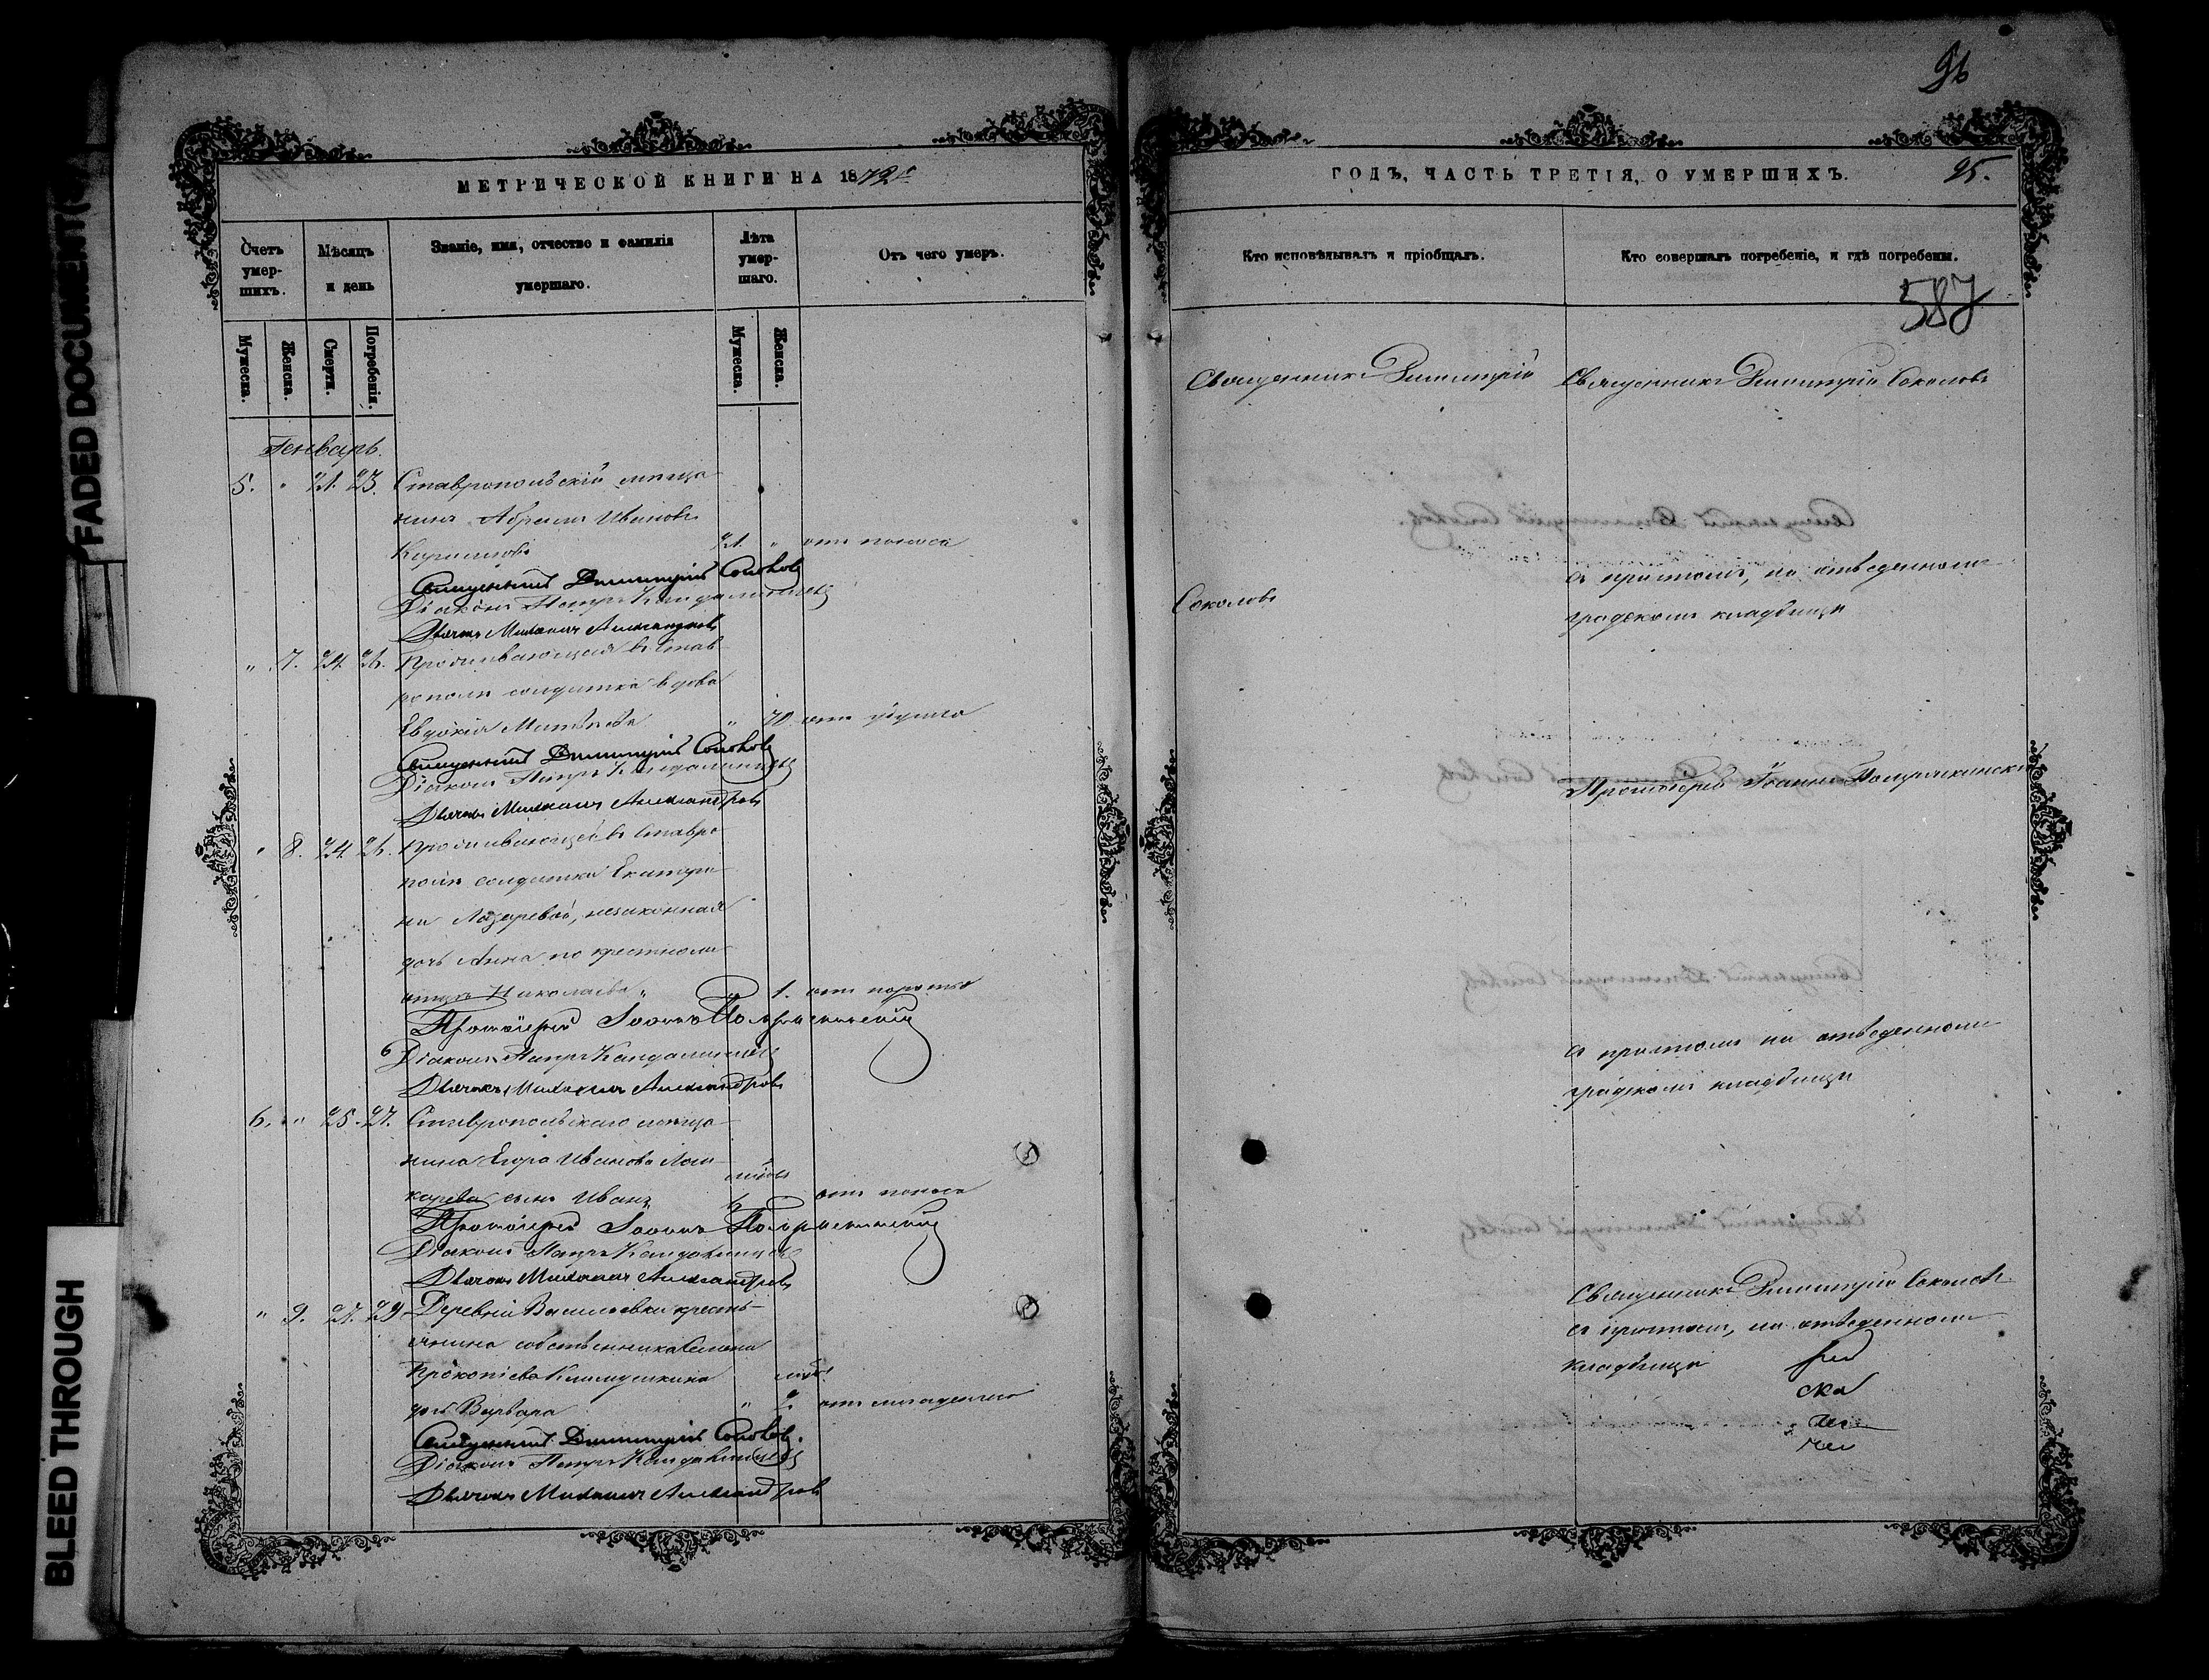 FADED DOCUMENT(
BLEED THROUGH
МЕТРИЧЕСКОЙ КНИГИ НА 1872
Счетъ умершихъ.
Мѣсяцъ и день
Званіе, имя, отчество и фамилія умершаго.
Лѣта умершаго.
Отъ чего умеръ.
Мужеска.
Женска.
Смерти.
Погребенія.
Мужеска.
Женска.
Генварь.
5. " 21. 23. Ставропольскій мѣща
нинъ Абрамъ Ивановъ
21. " отъ поноса
Священникъ Димитрій Соколовъ
Діаконъ Петръ Кандалинцевъ
Дьячокъ Михаилъ Александровъ
" 7. 24. 26. Проживающая въ Став
рополѣ солдатка вдова
Евдокія " 70 отъ удушья
Священникъ Димитрій Соколовъ
Діаконъ Петръ Кандалинцевъ
Дьячокъ Михаилъ Александровъ
" 8. 24. 26. Проживающей въ Ставро
полѣ солдатки Екатери
ны Лазаревой, незаконная
дочь Анна по крестному
отцу Николаева " 1. отъ
Протоіерей Іоаннъ
Діаконъ Петръ Кандалинцевъ
Дьячокъ Михаилъ Александровъ
6. " 25. 27. Ставропольскаго мѣща
нина Егора Иванова
сынъ Иванъ отъ поноса
Протоіерей Іоаннъ
Діаконъ Петръ Кандалинцевъ
Дьячокъ Михаилъ Александровъ
" 9. 27. 29 Деревни Васильевки кресть
янина собственника Семена
Прокопіева
дочь Варвара " 2. отъ
Священникъ Димитрій Соколовъ.
Діаконъ Петръ Кандалинцевъ
Дьячокъ Михаилъ Александровъ
96
ГОДЪ, ЧАСТЬ ТРЕТІЯ, О УМЕРШИХЪ.
95.
Кто исповѣдывалъ и пріобщалъ.
Кто совершалъ погребеніе, и гдѣ погребены.
587
Священникъ Димитрій
Священникъ Димитрій Соколовъ
Соколовъ
съ причтомъ, на отведенномъ
градскомъ кладбищѣ
Протоіерей Іоаннъ
съ причтомъ на отведенномъ
градскомъ кладбищѣ
Священникъ Димитрій Соколовъ
съ причтомъ, на отведенномъ
кладбищѣ
ска